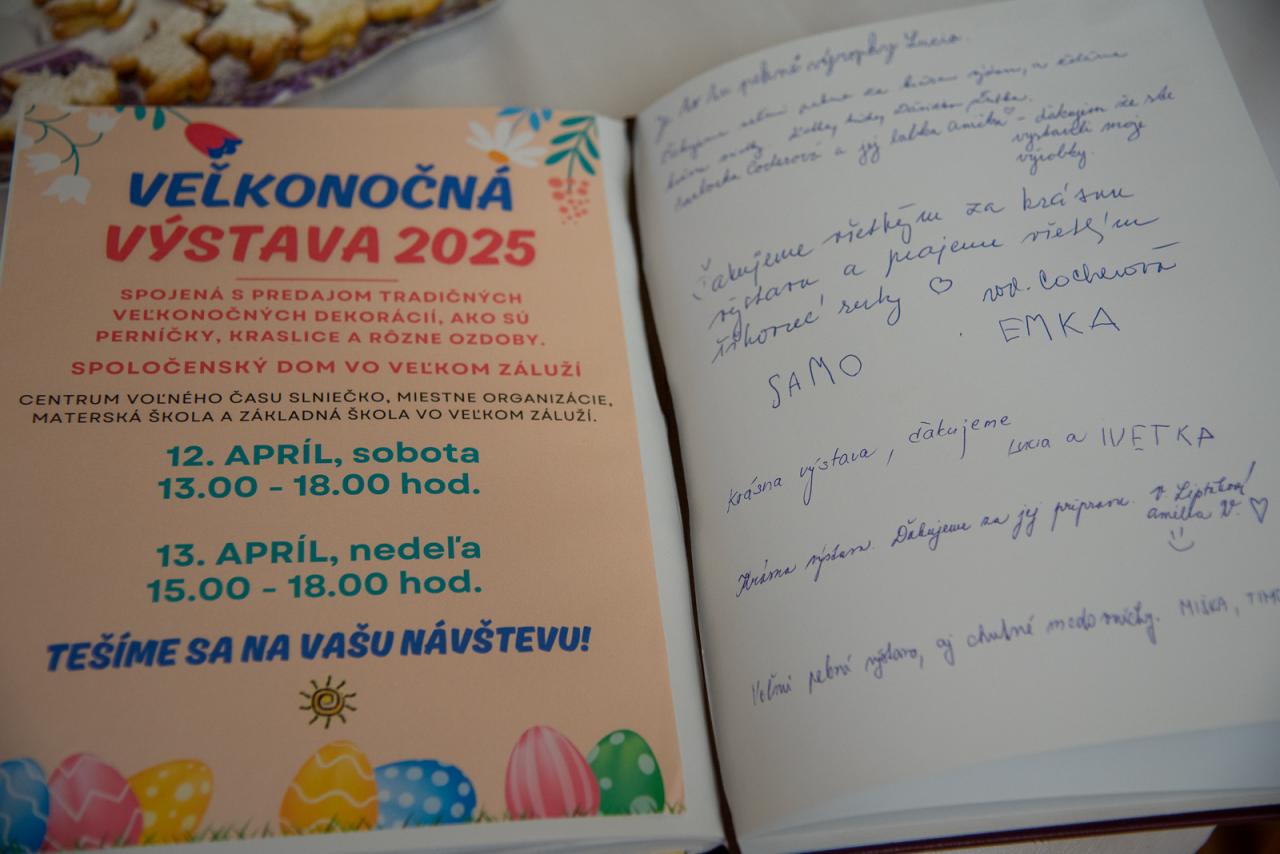 VEĽKONOČNÁ
VÝSTAVA 2025
SPOJENÁ S PREDAJOM TRADIČNÝCH
VEĽKONOČNÝCH DEKORÁCIÍ, AKO SÚ
PERNÍČKY, KRASLICE A RÔZNE OZDOBY.
SPOLOČENSKÝ DOM VO VEĽKOM ZÁLUŽÍ
CENTRUM VOĽNÉHO ČASU SLNIEČKO, MIESTNE ORGANIZÁCIE,
MATERSKÁ ŠKOLA A ZÁKLADNÁ ŠKOLA VO VEĽKOM ZÁLUŽÍ.
12. APRÍL, sobota
13.00 - 18.00 hod.
13. APRÍL, nedeľa
15.00 - 18.00 hod.
TEŠÍME SA NA VAŠU NÁVŠTEVU!
pekné výrobky
a jej babka Amika - ďakujem že ste
vystavili moje
výrobky.
Ďakujeme všetkým za krásnu
výstavu a prajeme všetkým
šikovné ruky ♡ rod. Cocherová
SAMO EMKA
Krásna výstava, ďakujeme
Lucia a IVETKA
Krásna výstava. Ďakujeme za jej prípravu.
Amélia V. ♡
Veľmi pekná výstava, aj chutné medovníčky. MIŠKA,